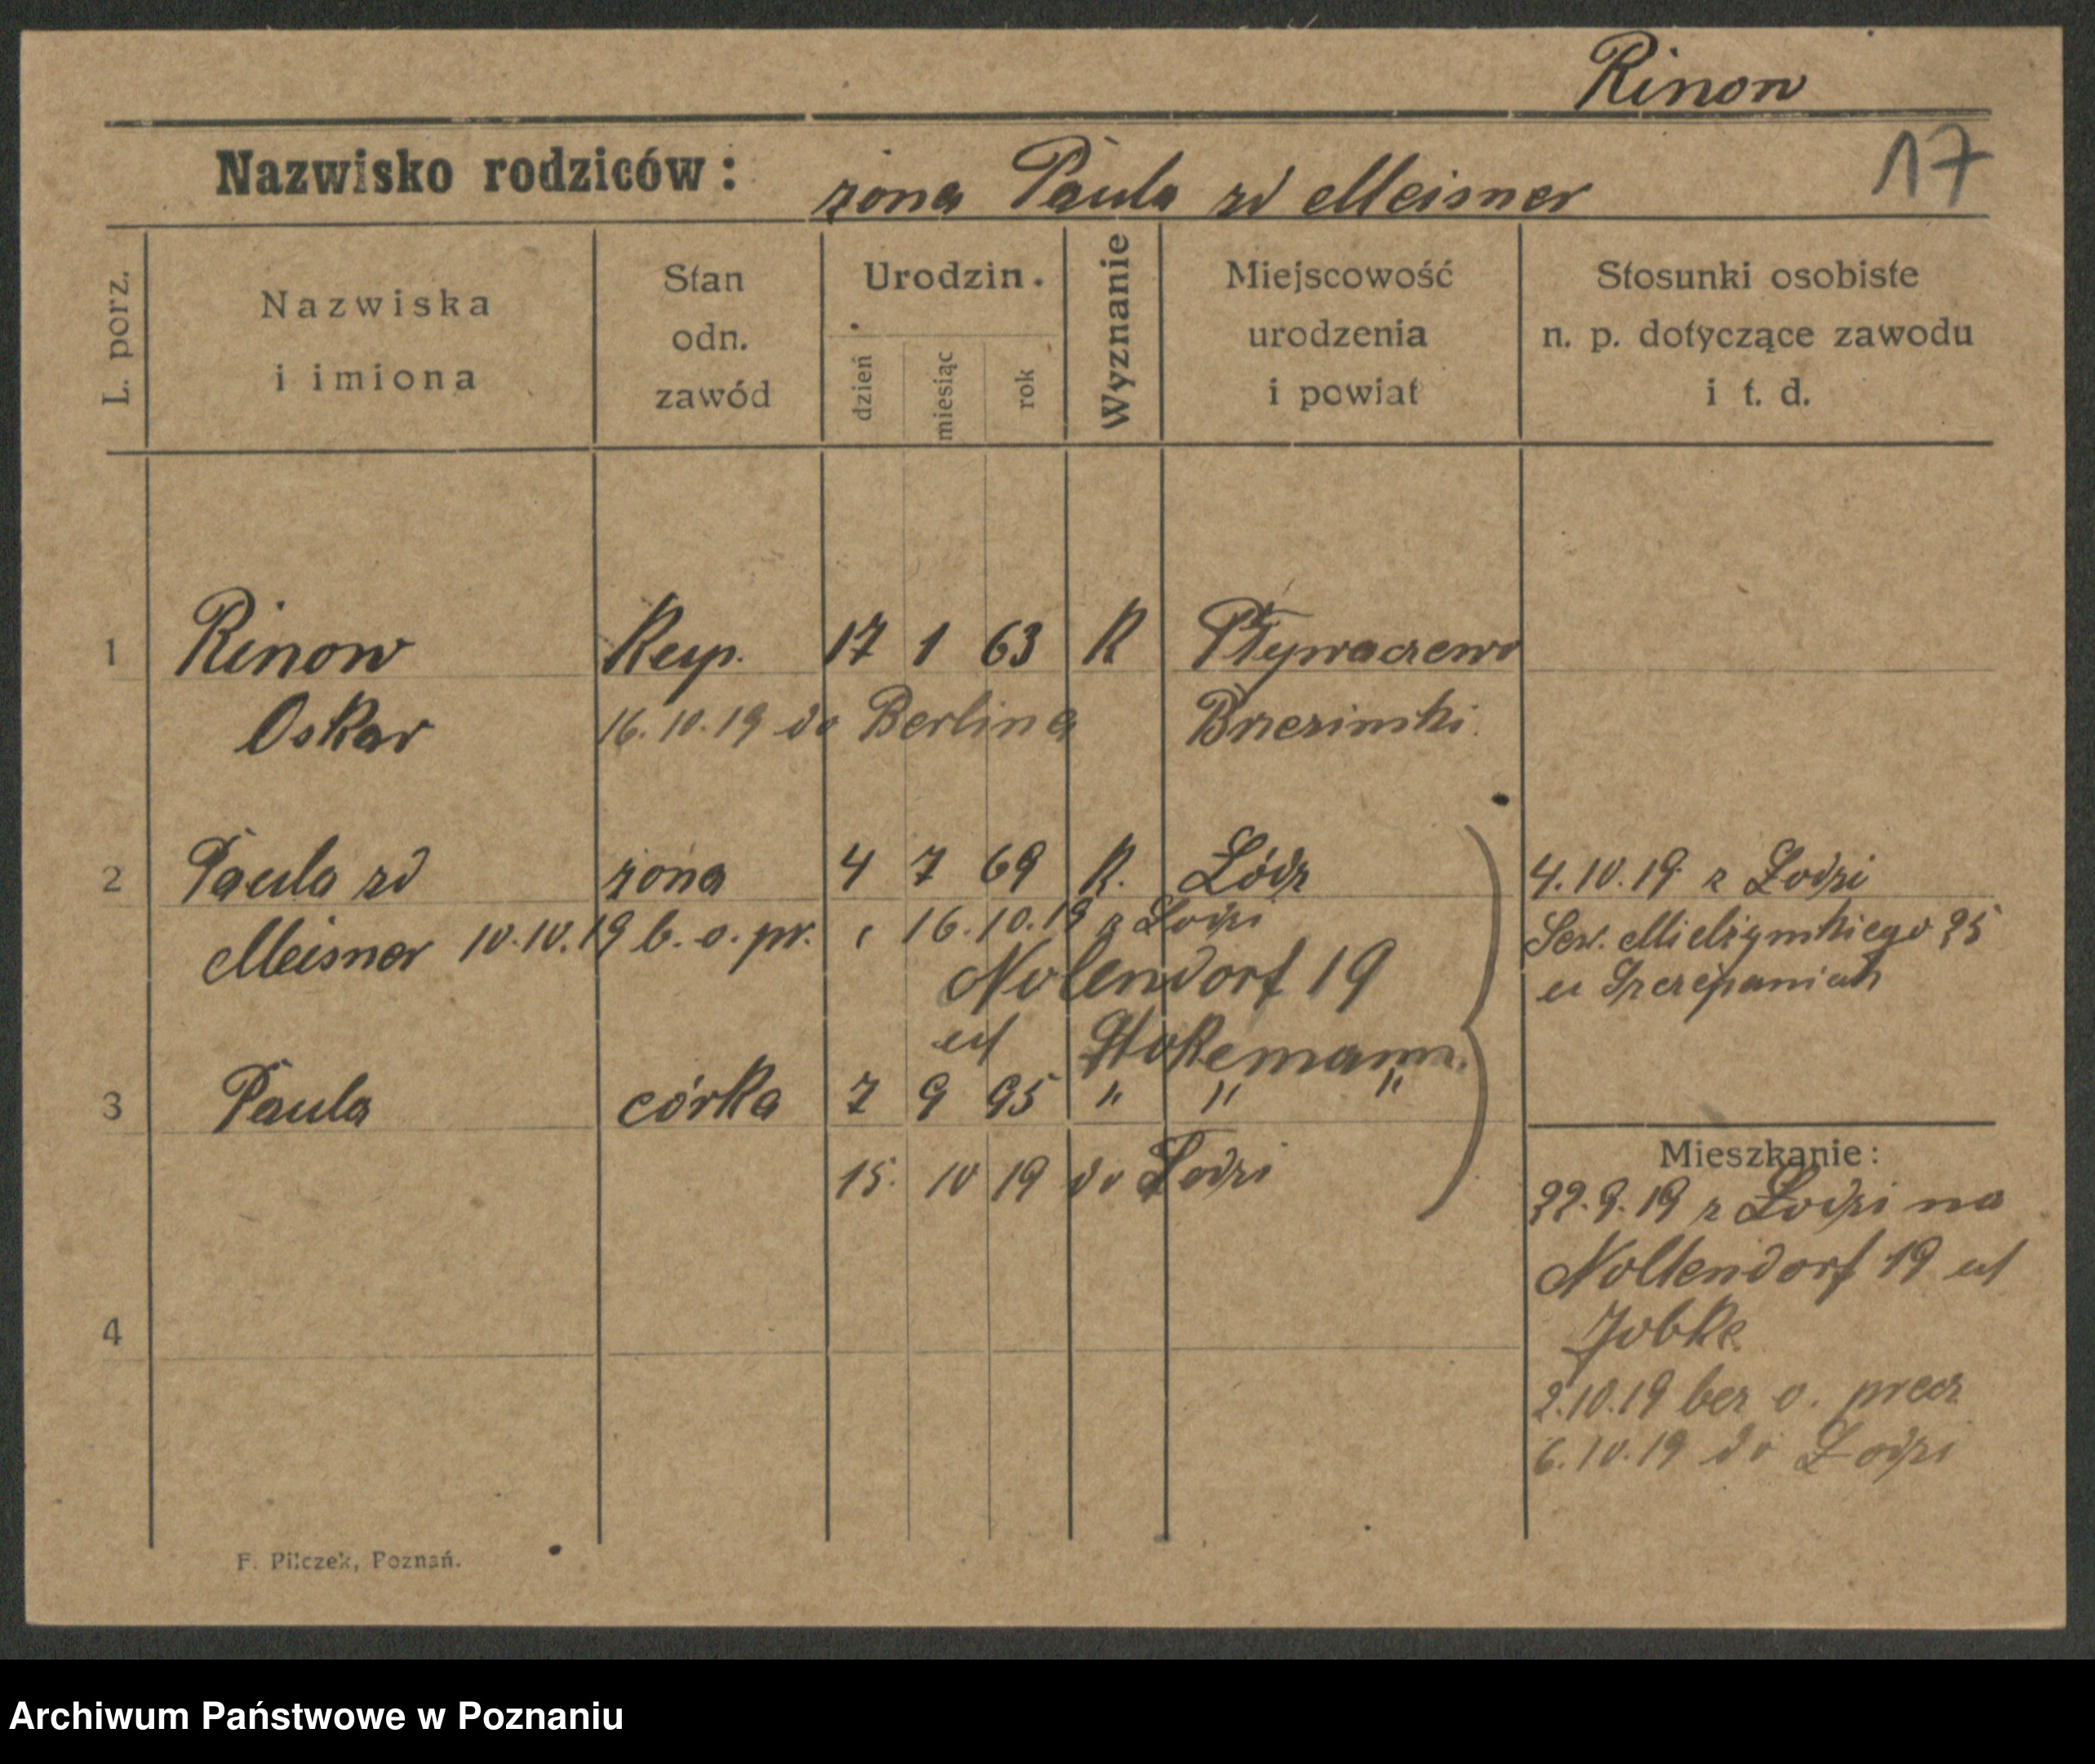 Rinow
Nazwisko rodziców: żona Paula zd Meisner 17
L. porz.
Nazwiska i imiona
Stan odn. zawód
Urodzin.
dzień miesiąc rok
Wyznanie
Miejscowość urodzenia i powiat
Stosunki osobiste n. p. dotyczące zawodu i t. d.
1 Rinow Kup. 17 1 63 K Pływaczewo
Oskar 16.10.19 do Berlina Brzezinski
2 Paula zd żona 4 7 69 K. Łódz 4.10.19 z Łodzi
Meisner 10.10.19 b. o. pr. 16.10.19 z Łodzi Sew. Mielżynskiego 25
Nolendorf 19 u Szczepaniak
ul
3 Paula córka 7 9 95 " " "
15. 10 19 do Łodzi
Mieszkanie:
22.9.19 z Łodzi na
Nollendorf 19 ul
Jobke
2.10.19 bez o. prac
6.10.19 do Łodzi
4
F. Pilczek, Poznań.
Archiwum Państwowe w Poznaniu